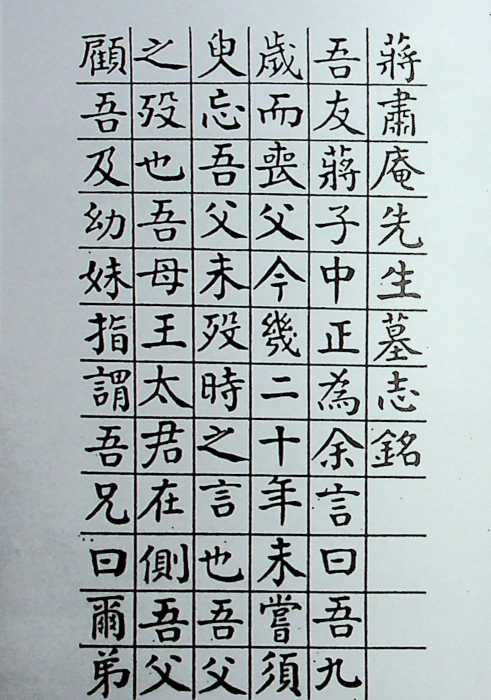 蔣肅庵先生墓志銘
吾友蔣子中正為余言曰吾九
歲而喪父今幾二十年未嘗須
臾忘吾父未歿時之言也吾父
之歿也吾母王太君在側吾父
顧吾及幼妹指謂吾兄曰爾弟